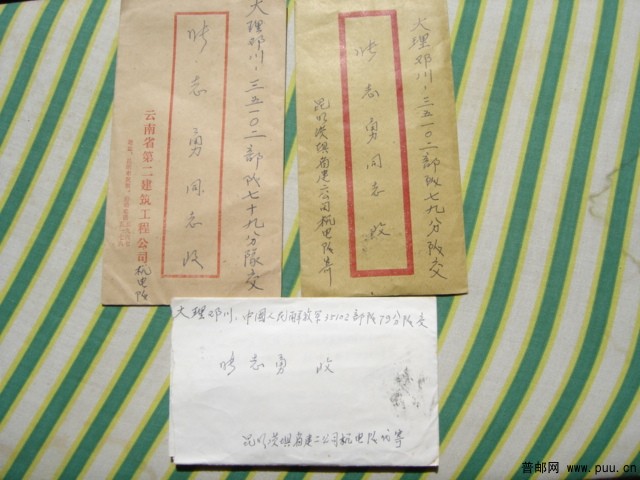 大理邓川，三五一〇二部队七十九分队交
志勇同志收
云南省第二建筑工程公司机电队
大理邓川，三五一〇二部队七九分队交
志勇同志收
昆明黄坝省建二公司机电队寄
大理邓川，中国人民解放军35102部队79分队交
志勇 收
昆明黄坝省建二公司机电队 寄
普邮网 www.puu.cn